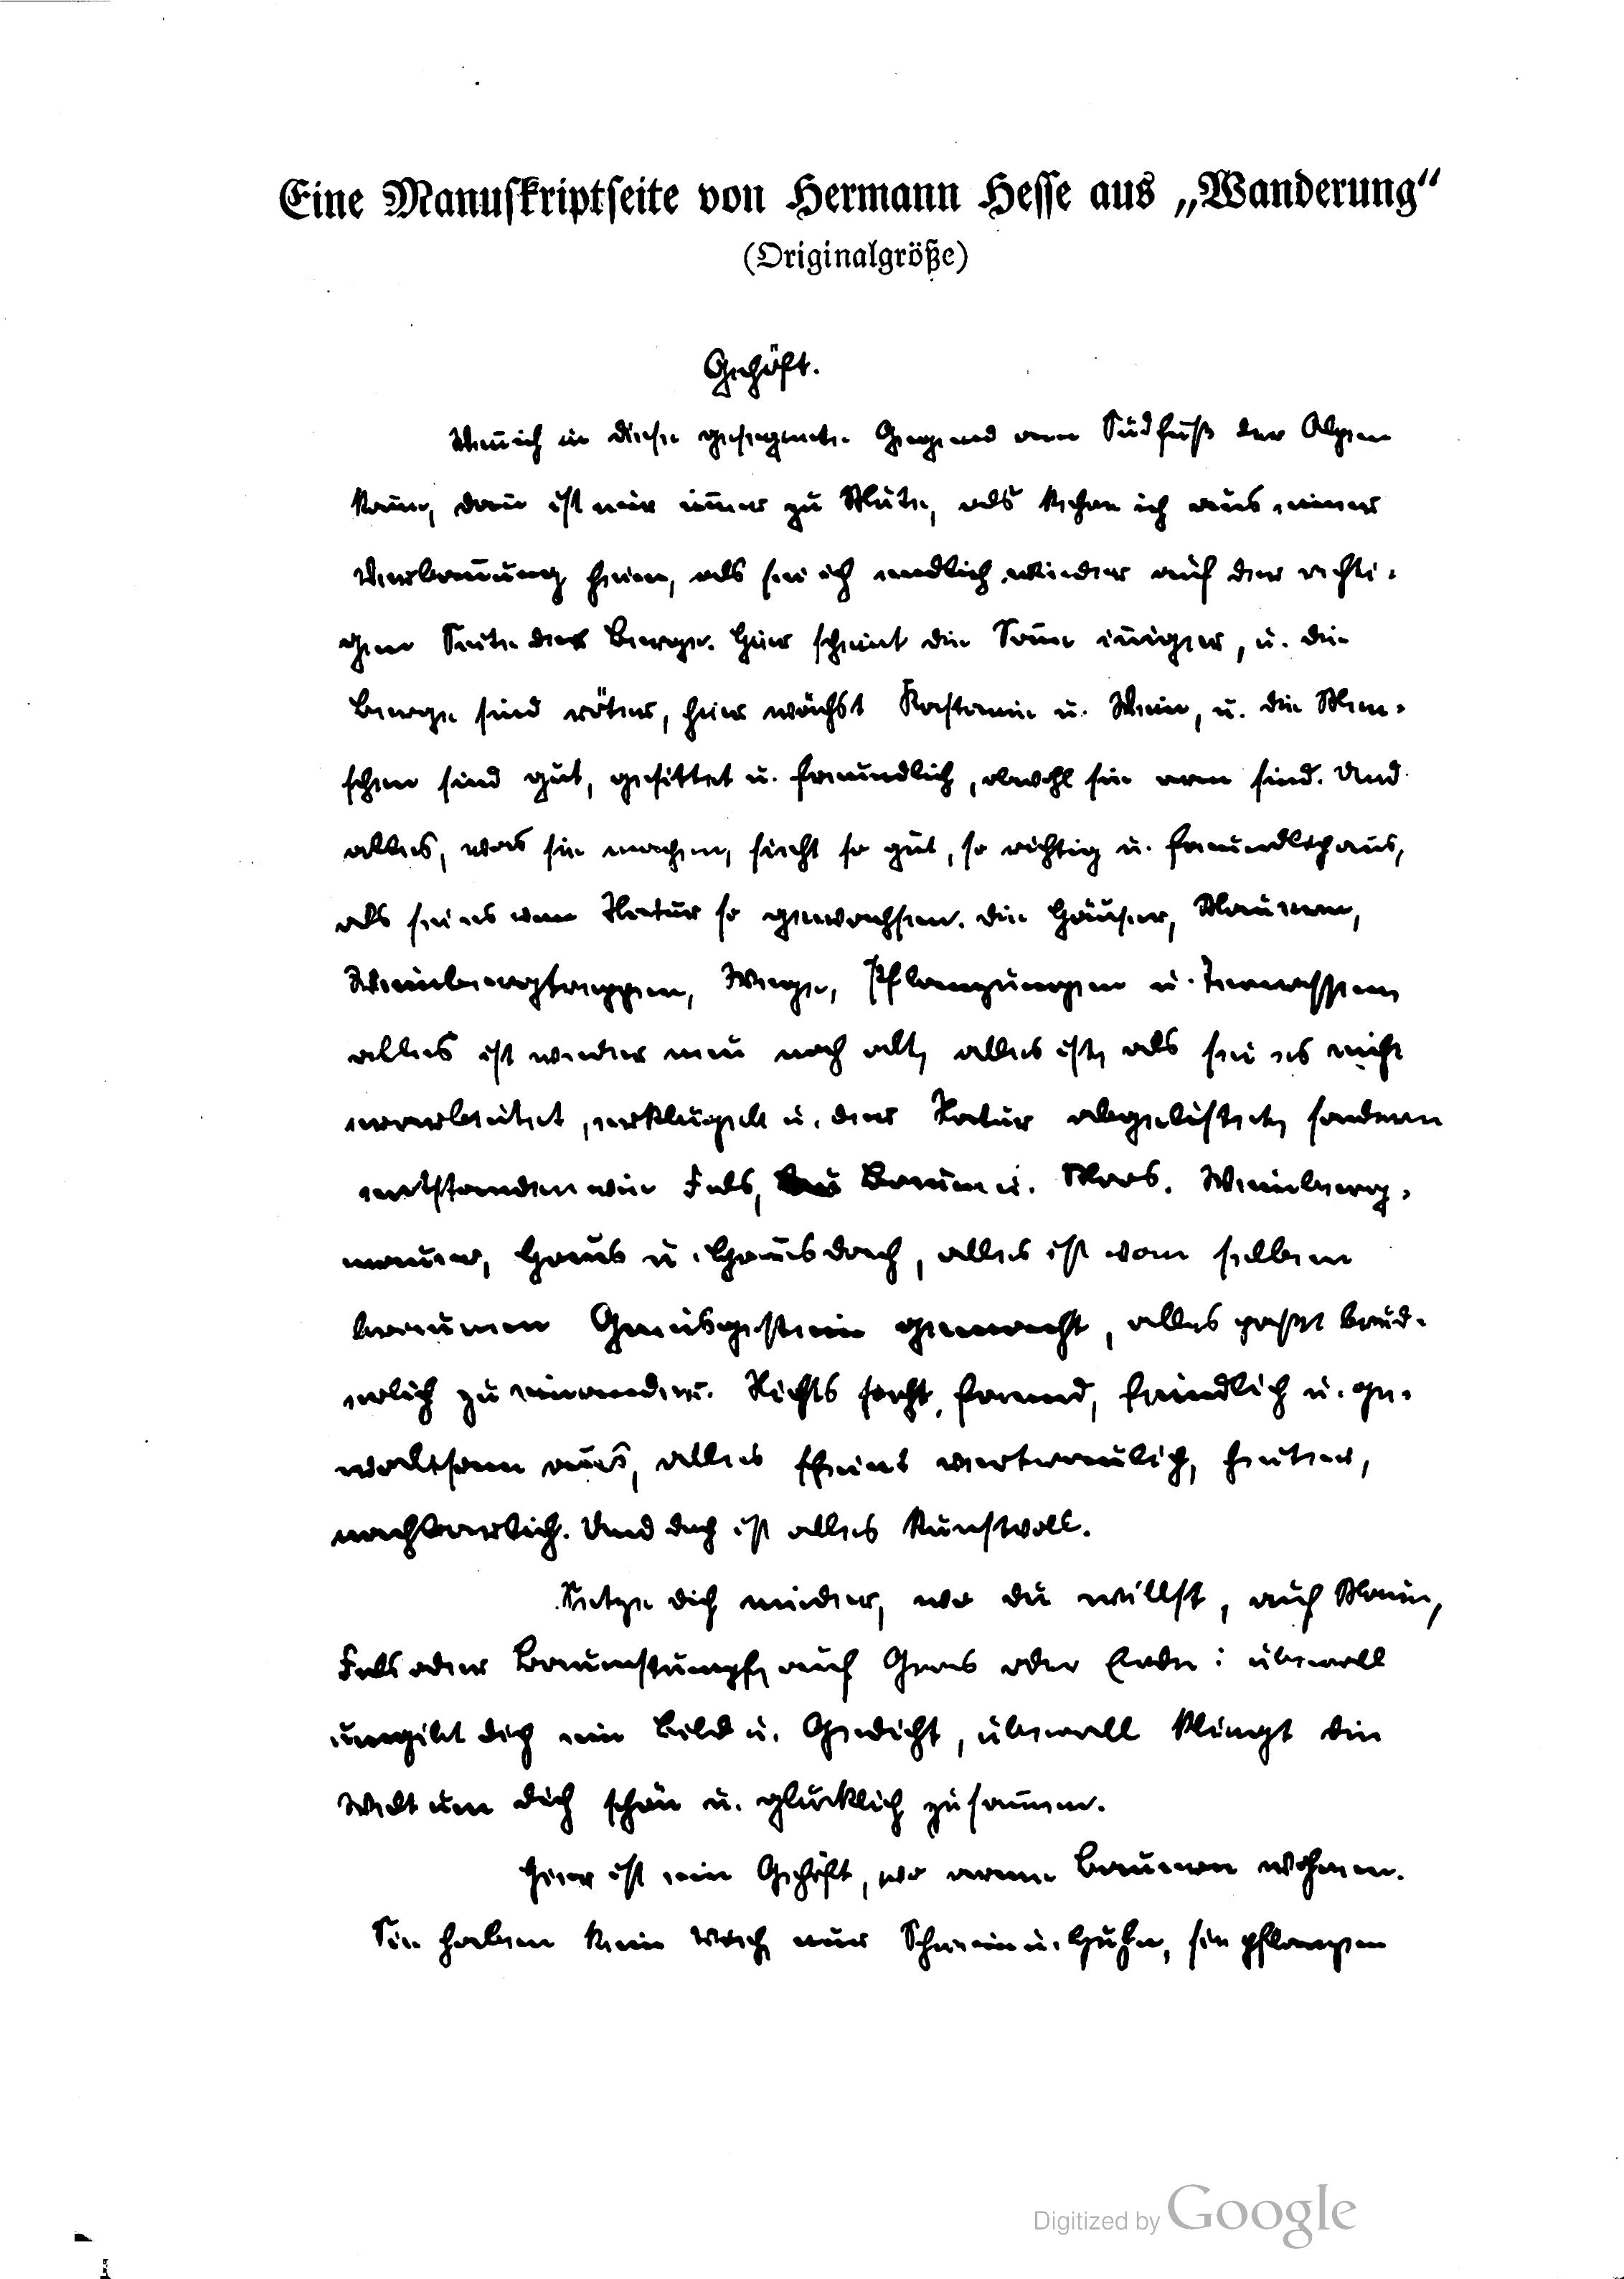 Eine Manuskriptseite von Hermann Hesse aus „Wanderung“
(Originalgröße)
Gehöft.
Wenn ich in diese gesegnete Gegend am Südfuß der Alpen
kom̄e, dan̄ ist mir im̄er zu Mute, als kehre ich aus einer
Verban̄ung heim, als sei ich endlich wieder auf der richti-
gen Seite der Berge. Hier scheint die Son̄e in̄iger, u. die
Berge sind röter, hier wächst Kastanie u. Wein, u. die Men-
schen sind gut, gesittet u. freundlich, obwohl sie arm sind. Und
alles, was sie machen, sieht so gut, so richtig u. freundlich aus,
als sei es von Natur so gewachsen. Die Häuser, Mauern,
Weinbergtreppen, Wege, Pflanzungen u. Terrassen,
alles ist weder neu noch alt, alles ist, als sei es nicht
erarbeitet, erklügelt u. der Natur abgelistet, sondern
entstanden wie Fels, Baum u. Moos. Weinberg-
mauer, Haus u. Hausdach, alles ist vom selben
braunen Gneisgestein gemacht, alles passt brüd-
erlich zu einander. Nichts sieht fremd, feindlich u. ge-
waltsam aus, alles scheint vertraulich, heiter,
nachbarlich. Und doch ist alles kunstvoll.
Setze dich nieder, wo du willst, auf Mauer,
Fels oder Baumstumpf, auf Gras oder Erde: überall
umgibt dich ein Bild u. Gedicht, überall klingt die
Welt um dich schön u. glücklich zusam̄en.
Hier ist ein Gehöft, wo arme Bauern wohnen.
Sie haben kein Vieh, nur Schwein u. Huhn, sie pflanzen
Digitized by Google